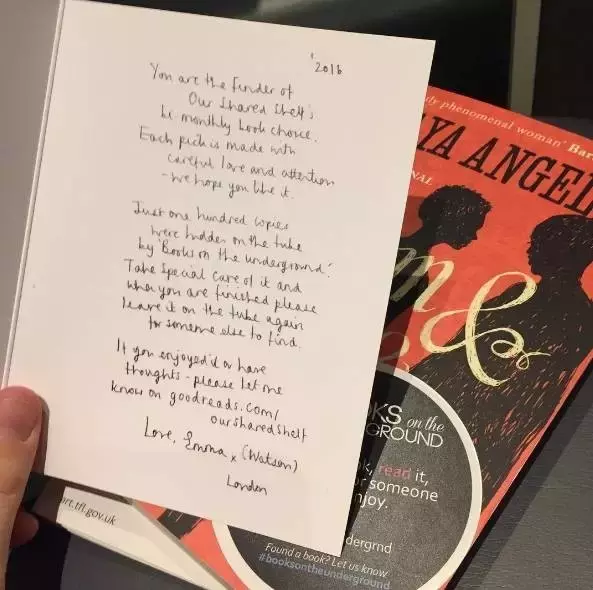 '2016
You are the finder of
Our Shared Shelf's
bi-monthly book choice.
Each pick is made with
careful love and attention
- we hope you like it.
Just one hundred copies
were hidden on the tube
by 'Books on the underground'.
Take special care of it and
when you are finished please
leave it on the tube again
for someone else to find.
If you enjoyed it or have
thoughts - please let me
know on goodreads.com/
oursharedshelf
Love, Emma x (Watson)
London
phenomenal woman' Bar
YA ANGEL
NAL
m &
KS on the
GROUND
k, read it,
or someone
njoy.
dergrnd
Found a book? Let us know
#booksontheunderground
ort.tfl.gov.uk